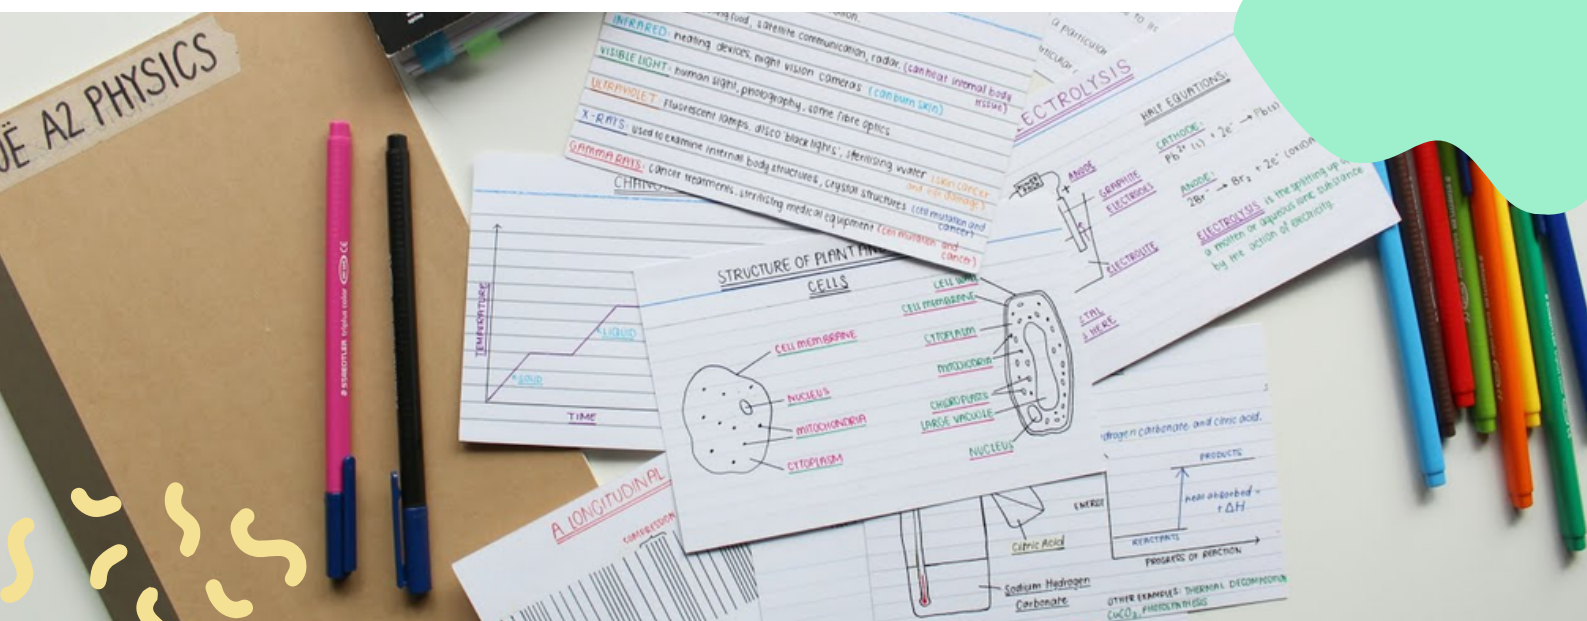 A2 PHYSICS
STAEDTLER triplus color CE
food, satellite communication, radar. (can heat internal body
tissue)
INFRARED: heating devices, night vision cameras (can burn skin)
VISIBLE LIGHT: human sight, photography, some fibre optics
ULTRAVIOLET: Fluorescent lamps, disco 'black lights', sterilising water (skin cancer
and eye damage)
X-RAYS: used to examine internal body structures, crystal structures (cell mutation and
cancer)
GAMMA RAYS: cancer treatments, sterilising medical equipment (cell mutation and
cancer)
TEMPERATURE
LIQUID
TIME
STRUCTURE OF PLANT
CELLS
CELL MEMBRANE
NUCLEUS
MITOCHONDRIA
CYTOPLASM
CELL WALL
CELL MEMBRANE
CYTOPLASM
MITOCHONDRIA
CHLOROPLASTS
LARGE VACUOLE
NUCLEUS
a particular
ECTROLYSIS
ANODE
GRAPHITE
ELECTRODES
ELECTROLYTE
HERE
HALF EQUATIONS:
CATHODE:
Pb²⁺ (l) + 2e⁻ → Pb(s)
ANODE:
2Br⁻ → Br₂ + 2e⁻
ELECTROLYSIS is the splitting up
a molten or aqueous ionic substance
by the action of electricity.
A LONGITUDINAL
COMPRESSION
Citric Acid
Sodium Hydrogen
Carbonate
drogen carbonate and citric acid.
ENERGY
PRODUCTS
heat absorbed =
+ΔH
REACTANTS
PROGRESS OF REACTION
OTHER EXAMPLES: THERMAL DECOMPOSITION
CuCO₃, PHOTOSYNTHESIS